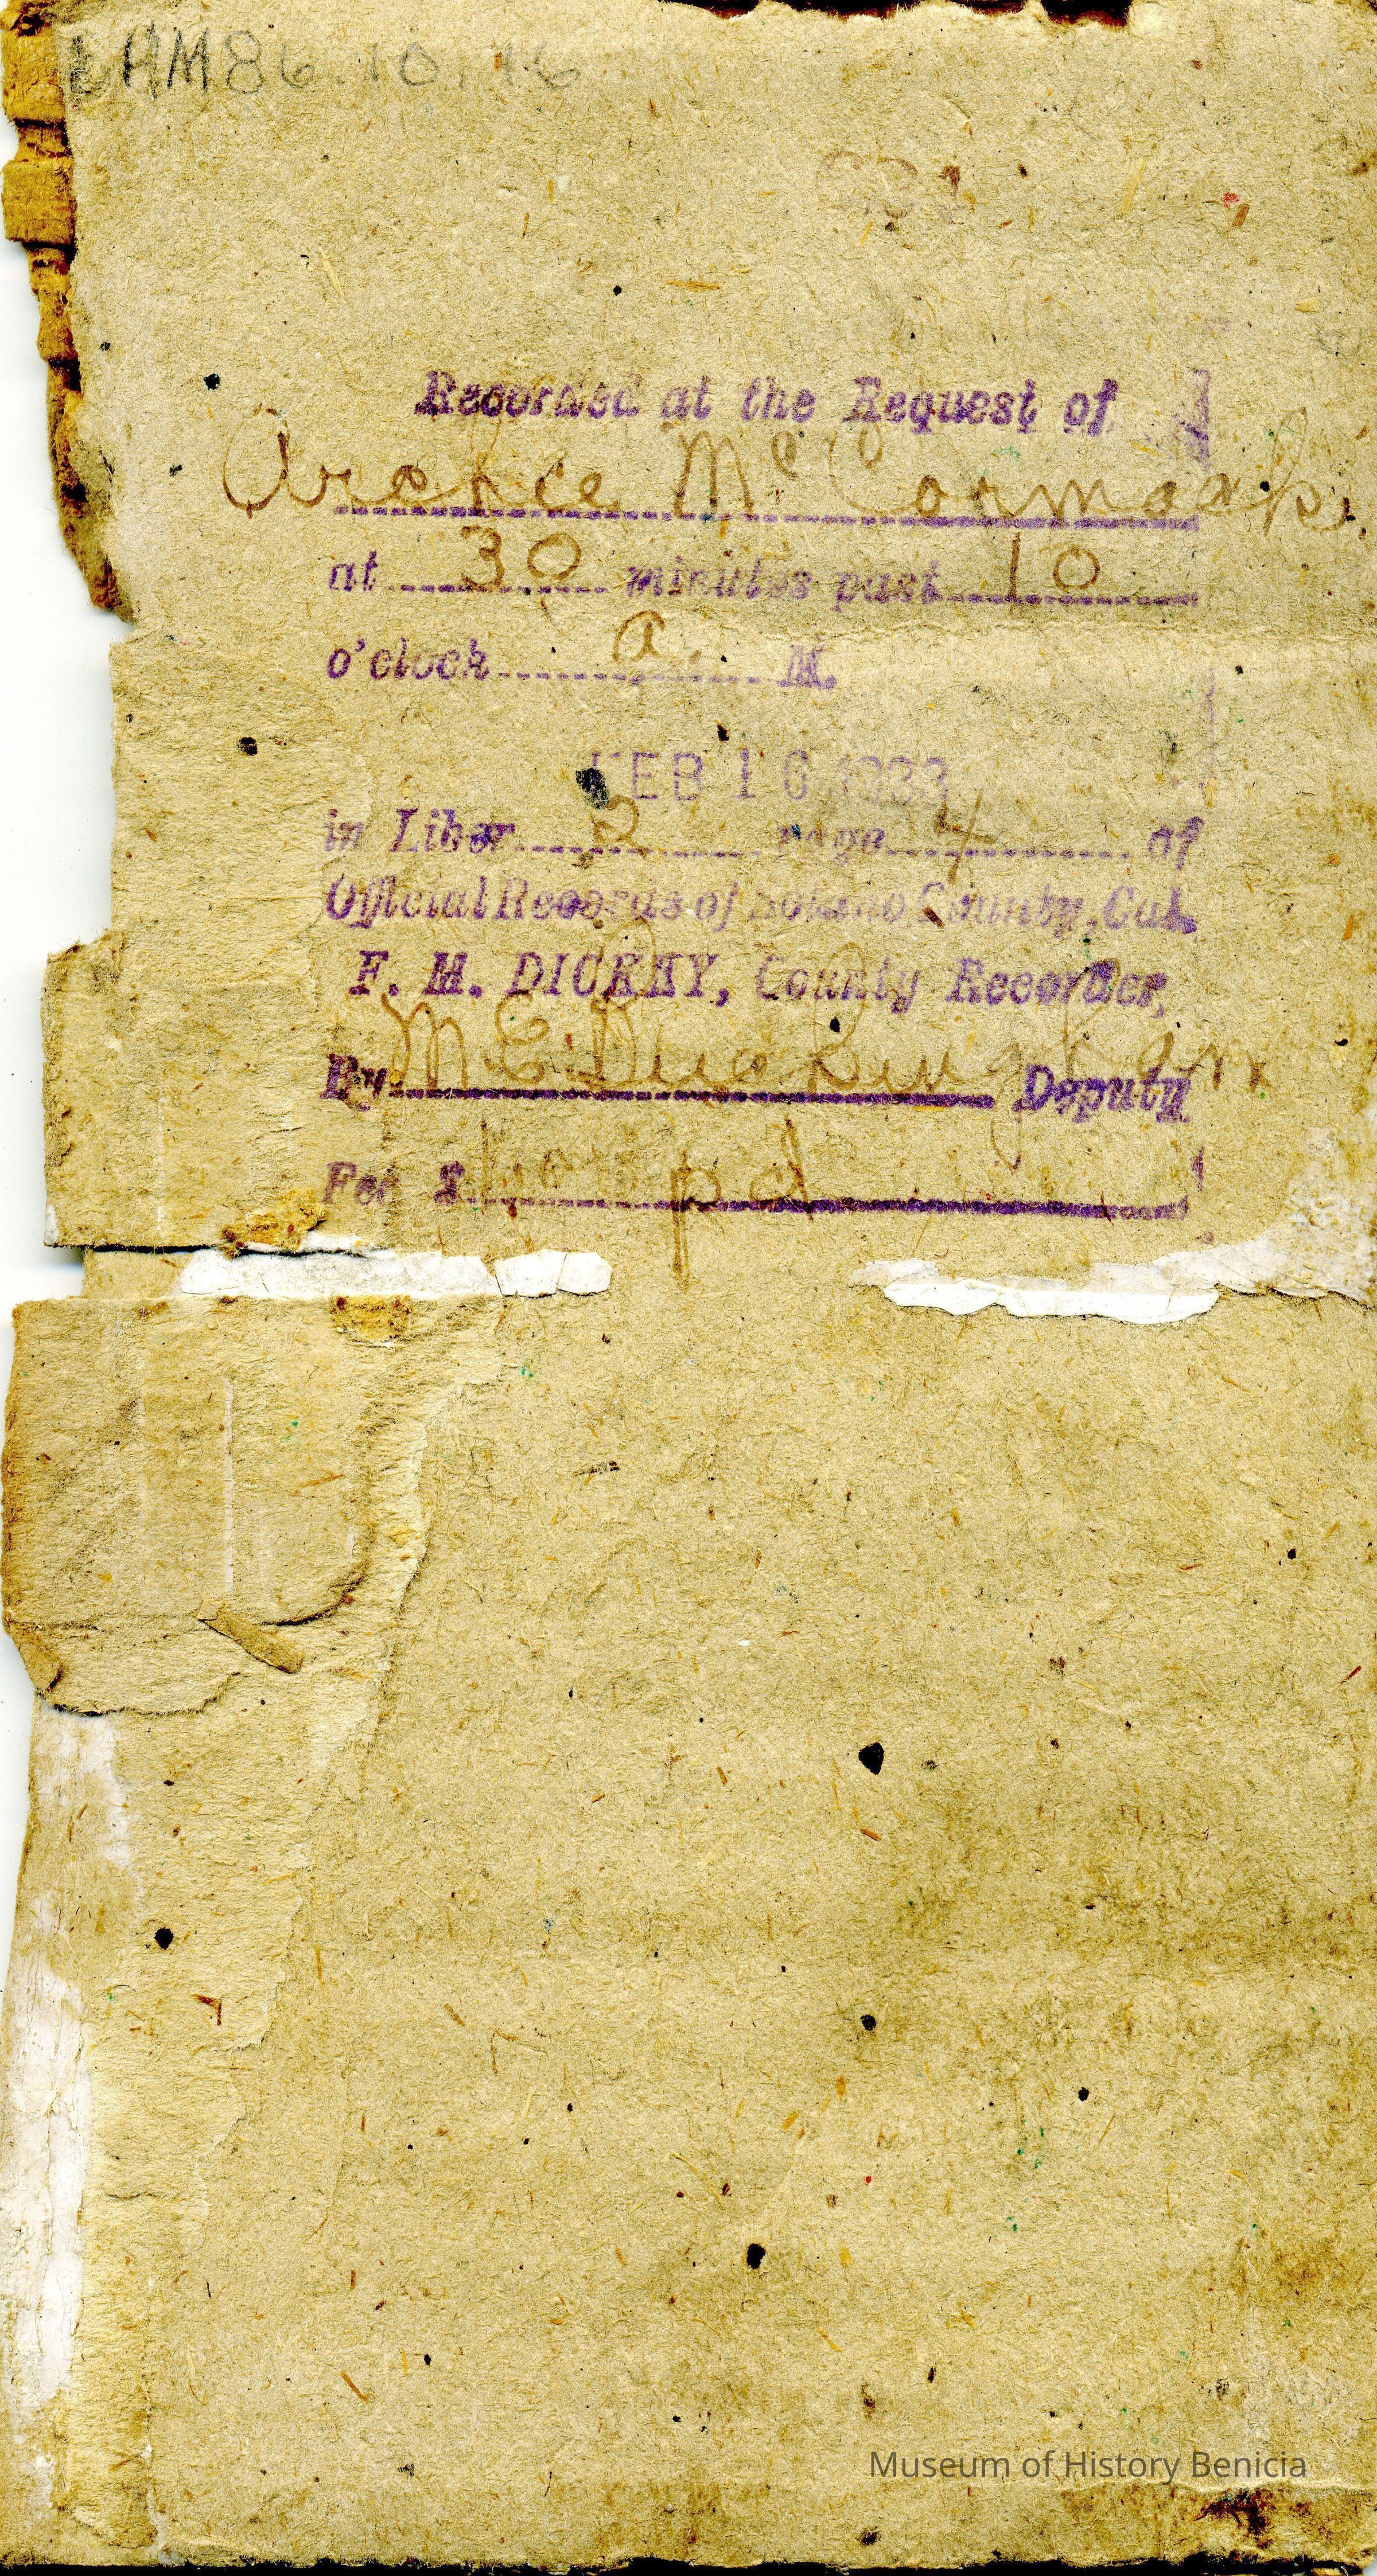 BHM86.10.16
Recorded at the Request of
Archie McCormack
at 30 minutes past 10
o'clock a. M.
FEB 16 1933
in Liber 2 page 4 of
Official Records of Solano County, Cal.
F. M. DICKEY, County Recorder,
By M E Buckingham Deputy
Fee $ pd
Museum of History Benicia